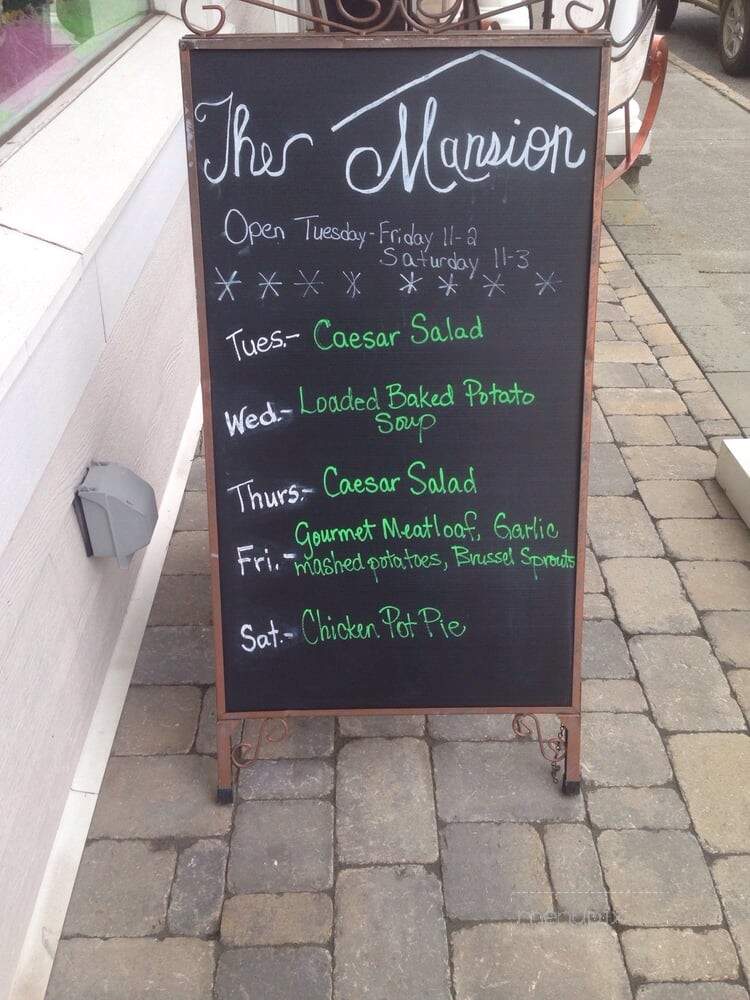 The Mansion
Open Tuesday-Friday 11-2
Saturday 11-3
Tues.- Caesar Salad
Wed.- Loaded Baked Potato
Soup
Thurs.- Caesar Salad
Gourmet Meatloaf, Garlic
Fri.- mashed potatoes, Brussel Sprouts
Sat.- Chicken Pot Pie
menupix